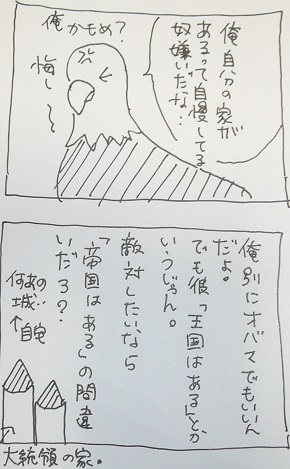 俺自分の家が
あるって自慢してる
奴嫌いだな…
俺かもめ?
悔し~~
俺別にオバマでもいいん
だよ。
でも彼「王国はある」とか
いうじゃん。
敵対したいなら
「帝国はある」の間違
いだろ?
何あの
城…
↑自宅
大統領の家。